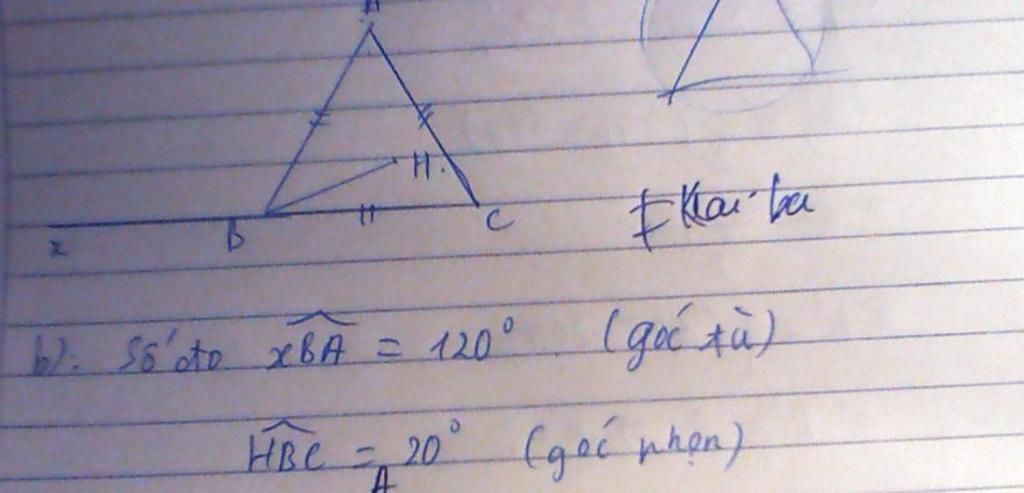 A
H
x B C
b). Số đo xBA = 120° (góc tù)
HBC = 20° (góc nhọn)
A